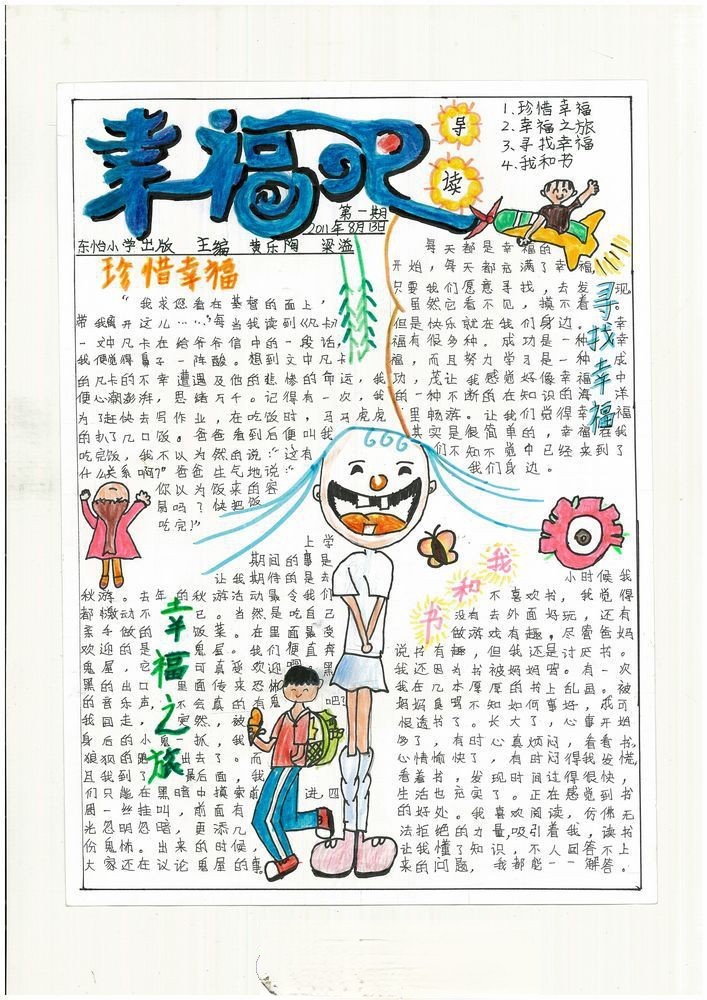 幸福吧
导读
1.珍惜幸福
2.幸福之旅
3.寻找幸福
4.我和书
第一期
2011年8月13日
东怡小学出版 主编 黄乐陶 梁溢
珍惜幸福
"我求您看在基督的面上,
带我离开这儿……"每当我读到《凡卡》
一文中凡卡在给爷爷信中的一段话,
我便觉得鼻子一阵酸。想到文中凡卡
的凡卡的不幸遭遇及他的悲惨的命运,我
便心潮澎湃,思绪万千。记得有一次,我
为了赶快去写作业,在吃饭时,马马虎虎
的扒了几口饭。爸爸看到后便叫我
吃完饭,我不以为然的说:"这有
什么关系啊?"爸爸生气地说:"
你以为饭来的容
易吗?快把饭
吃完!"
寻找幸福
每天都是幸福的
开始,每天都充满了幸福,
只要我们愿意寻找,去发现
虽然它看不见,摸不着
但是快乐就在我们身边。幸
福有很多种,成功是一种幸
福,而且努力学习是一种成
功,茂让我感觉好像幸福中
的一种不断的在知识的海洋
里畅游。让我们觉得幸福福
其实是很简单的,幸福在我
们不知不觉中已经来到了
我们身边。
幸福之旅
上学
期间的事是
让我期待的是去
秋游。去年的秋游活动最令我们
都激动不已。当然是吃自己
亲手做的饭菜。在里面最受
欢迎的是鬼屋。我们便直奔
鬼屋,它可真受欢迎啊。黑
黑的出口里面传来恐怖
的音乐声,不会真的有鬼吧?
我回走,突然,被
身后的小鬼一抓,我
狼狈的出去了。而
且我到了最后面,我
们只能在黑暗中摸索前进,四
周一丝挂叫,前面有
光忽明忽暗,更添几
份鬼怖。出来的时候,
大家还在议论鬼屋的事。
我和书
小时候我
不喜欢书,我觉得
没有去外面好玩,还有
做游戏有趣,尽管爸妈
说书有趣,但我还是讨厌书。
我还因为书被妈妈骂。有一次
我在几本厚厚的书上乱画。被
妈妈臭骂不知如何事好,我可
恨透书了。长大了,心事开始
多了,有时心真烦闷,看看书,
心情愉快了,有时闷得我发慌,
看着书,发现时间过得很快,
生活也充实了。正在感觉到书
的好处。我喜欢阅读,仿佛无
法拒绝的力量,吸引着我,读书
让我懂了知识,不人回答不上
来的问题,我都能一一解答。